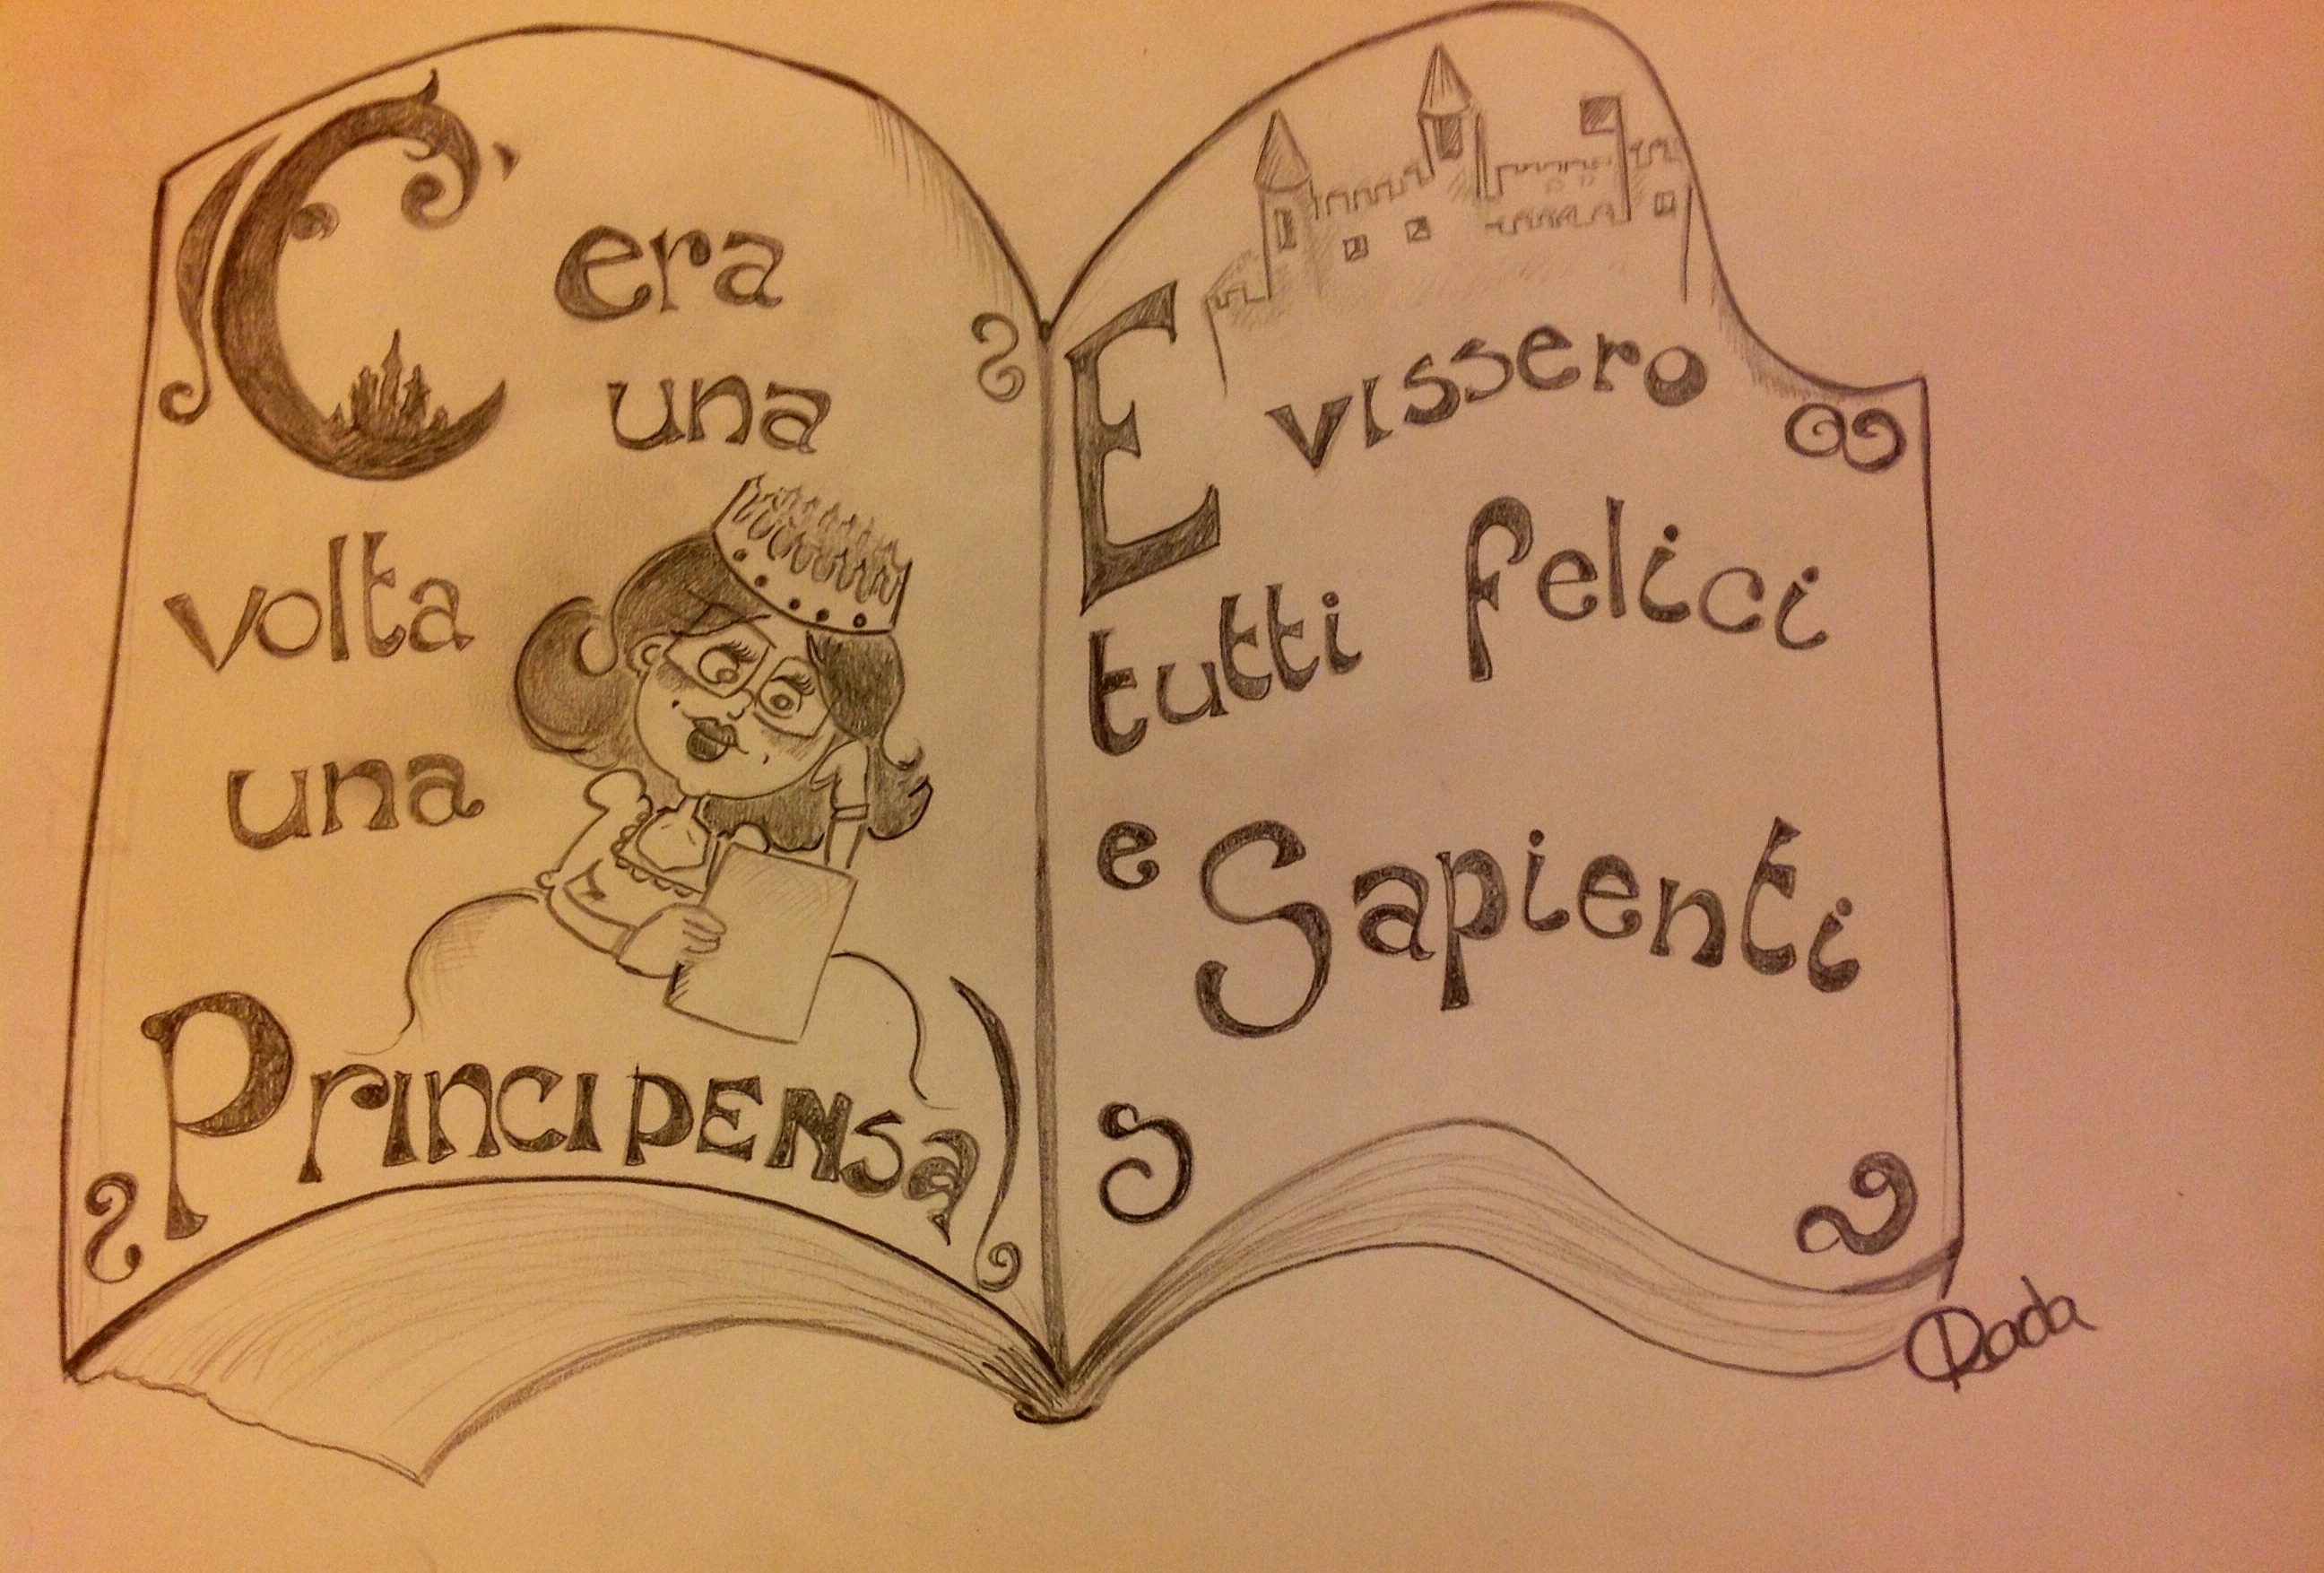 C'era
una
volta
una
PrincipENsa
E vissero
tutti felici
e Sapienti